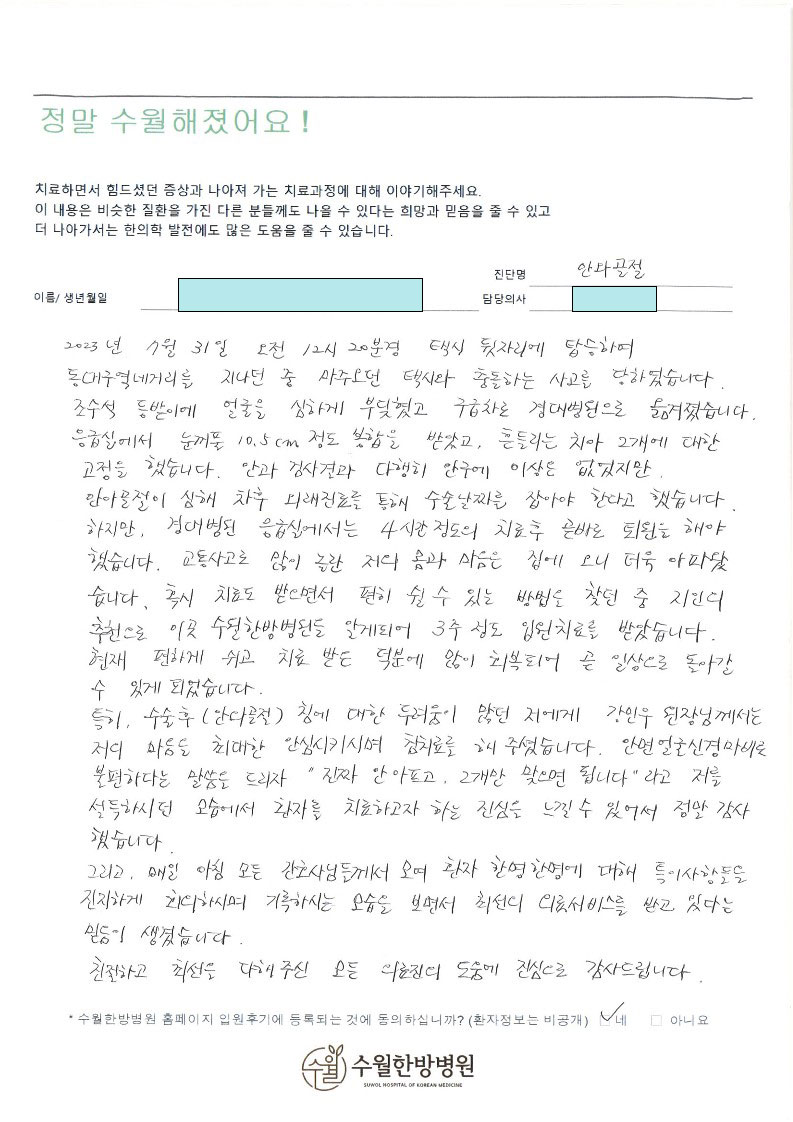 정말 수월해졌어요!
치료하면서 힘드셨던 증상과 나아져 가는 치료과정에 대해 이야기해주세요.
이 내용은 비슷한 질환을 가진 다른 분들께도 나을 수 있다는 희망과 믿음을 줄 수 있고
더 나아가서는 한의학 발전에도 많은 도움을 줄 수 있습니다.
진단명 안와골절
이름/ 생년월일 담당의사
2023년 7월 31일 오전 12시 20분경 택시 뒷자리에 탑승하여
동대구역네거리를 지나던 중 마주오던 택시와 충돌하는 사고를 당하였습니다.
조수석 등받이에 얼굴을 심하게 부딪혔고 구급차로 경대병원으로 옮겨졌습니다.
응급실에서 눈꺼풀 10.5cm 정도 봉합을 받았고, 흔들리는 치아 2개에 대한
고정을 했습니다. 안과 검사결과 다행히 안구에 이상은 없었지만
안와골절이 심해 차후 외래진료를 통해 수술날짜를 잡아야 한다고 했습니다.
하지만, 경대병원 응급실에서는 4시간정도의 치료후 곧바로 퇴원을 해야
했습니다. 교통사고로 많이 놀란 저의 몸과 마음은 집에 오니 더욱 아파왔
습니다. 혹시 치료도 받으면서 편히 쉴 수 있는 방법을 찾던 중 지인의
추천으로 이곳 수월한방병원을 알게되어 3주 정도 입원치료를 받았습니다.
현재 편하게 쉬고 치료 받은 덕분에 많이 회복되어 곧 일상으로 돌아갈
수 있게 되었습니다.
특히, 수술후(안와골절) 침에 대한 두려움이 많던 저에게 강인우 원장님께서는
저의 마음을 최대한 안심시키시며 침치료를 해 주셨습니다. 안면얼굴신경마비로
불편하다는 말씀을 드리자 "진짜 안아프고, 2개만 맞으면 됩니다"라고 저를
설득하시던 모습에서 환자를 치료하고자 하는 진심을 느낄 수 있어서 정말 감사
했습니다.
그리고, 매일 아침 모든 간호사님들께서 오며 환자 한명한명에 대해 특이사항들을
진지하게 회의하시며 기록하시는 모습을 보면서 최선의 의료서비스를 받고 있다는
믿음이 생겼습니다.
친절하고 최선을 다해주신 모든 의료진의 도움에 진심으로 감사드립니다.
* 수월한방병원 홈페이지 입원후기에 등록되는 것에 동의하십니까? (환자정보는 비공개) 네 아니요
수월 수월한방병원
SUWOL HOSPITAL OF KOREAN MEDICINE